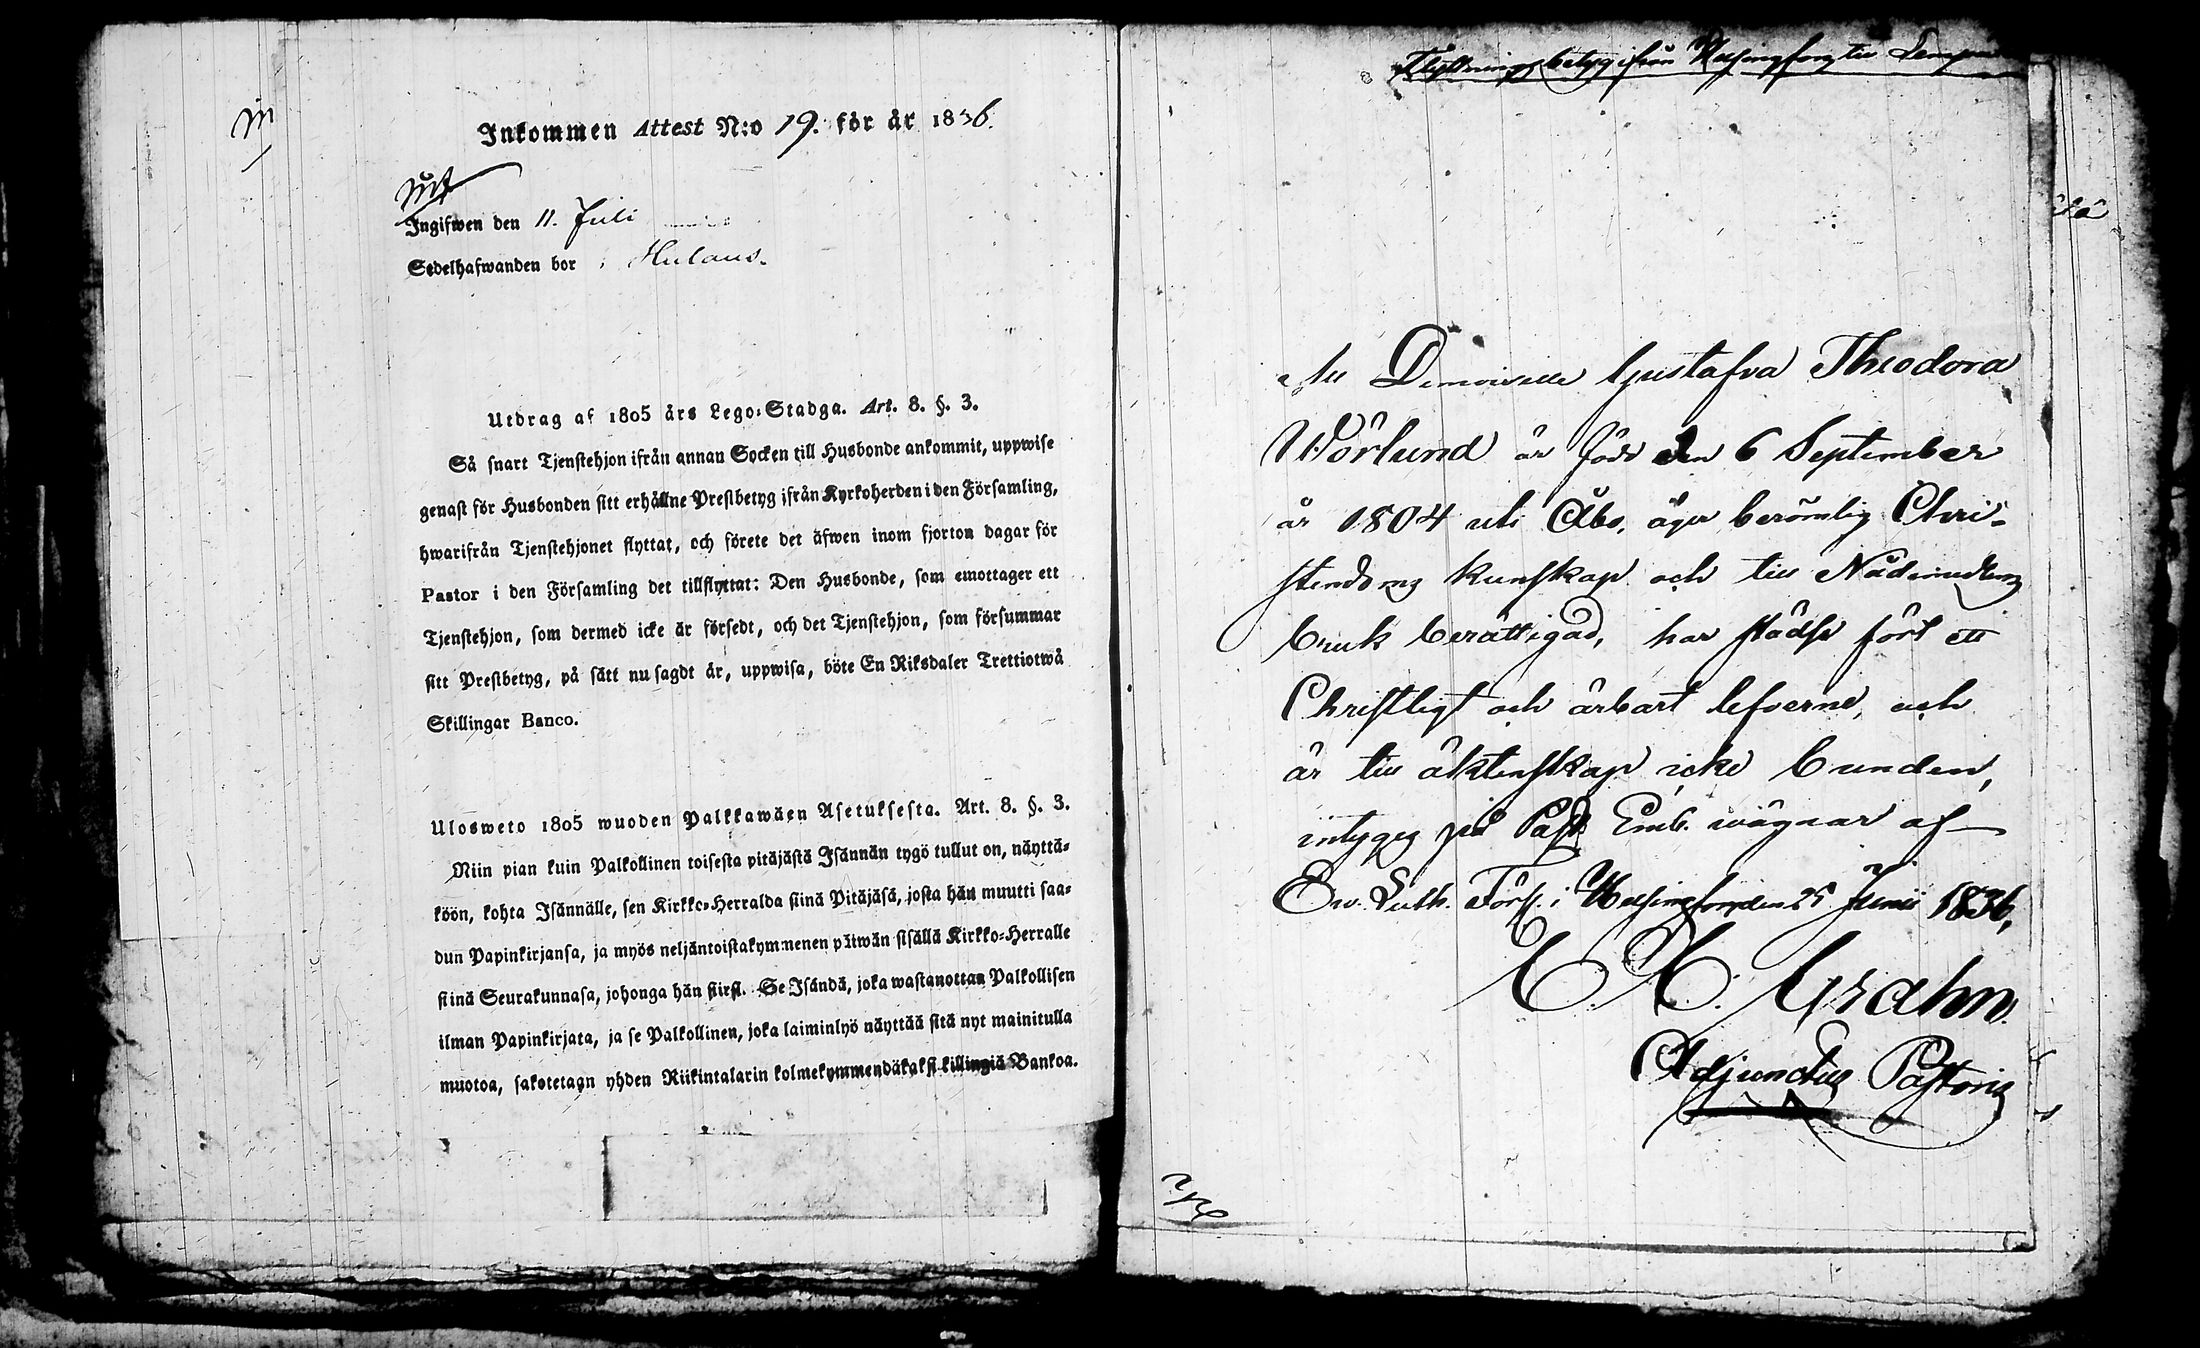 Inkommen Attest N:o 19. för år 1836.
Ingifwen den 11. Juli
Sedelhafwanden bor i
Utdrag af 1805 års Lego-Stadga. Art. 8. §. 3.
Så snart Tjenstehjon ifrån annan Socken till Husbonde ankommit, uppwise
genast för Husbonden sitt erhållne Prestbetyg ifrån Kyrkoherden i den Församling,
hwarifrån Tjenstehjonet flyttat, och förete det äfwen inom fjorton dagar för
Pastor i den Församling det tillflyttat: Den Husbonde, som emottager ett
Tjenstehjon, som dermed icke är försedt, och det Tjenstehjon, som försummar
sitt Prestbetyg, på sätt nu sagdt är, uppwisa, böte En Riksdaler Trettiotwå
Skillingar Banco.
Ulosweto 1805 wuoden Palkkawäen Asetuksesta. Art. 8. §. 3.
Niin pian kuin Palkollinen toisesta pitäjästä Isännän tygö tullut on, näyttä-
köön, kohta Isännälle, sen Kirkko-Herralda siinä Pitäjäsä, josta hän muutti saa-
dun Papinkirjansa, ja myös neljäntoistakymmenen päiwän sisällä Kirkko-Herralle
siinä Seurakunnasa, johonga hän siirsi. Se Isändä, joka wastanottaa Palkollisen
ilman Papinkirjata, ja se Palkollinen, joka laiminlyö näyttää sitä nyt mainitulla
muotoa, sakotetaan yhden Riikintalarin kolmekymmendäkaksi killingiä Bankoa.
Flyttningsbetyg ifrån Helsingfors till
Demoiselle Gustafva Theodora
Wörlund är född den 6 September
år 1804 uti Åbo, äger berömlig Chri-
stendoms kunskap och till Nådemedlens
bruk berättigad, har städse fört ett
Christligt och ärbart lefverne, och
är till äktenskap icke bunden,
intygas på Past. Emb. wägnar af
Ev. Luth. Förs. i Helsingfors den 25 Junii 1836,
Grahn.
Adjunctus Pastoris